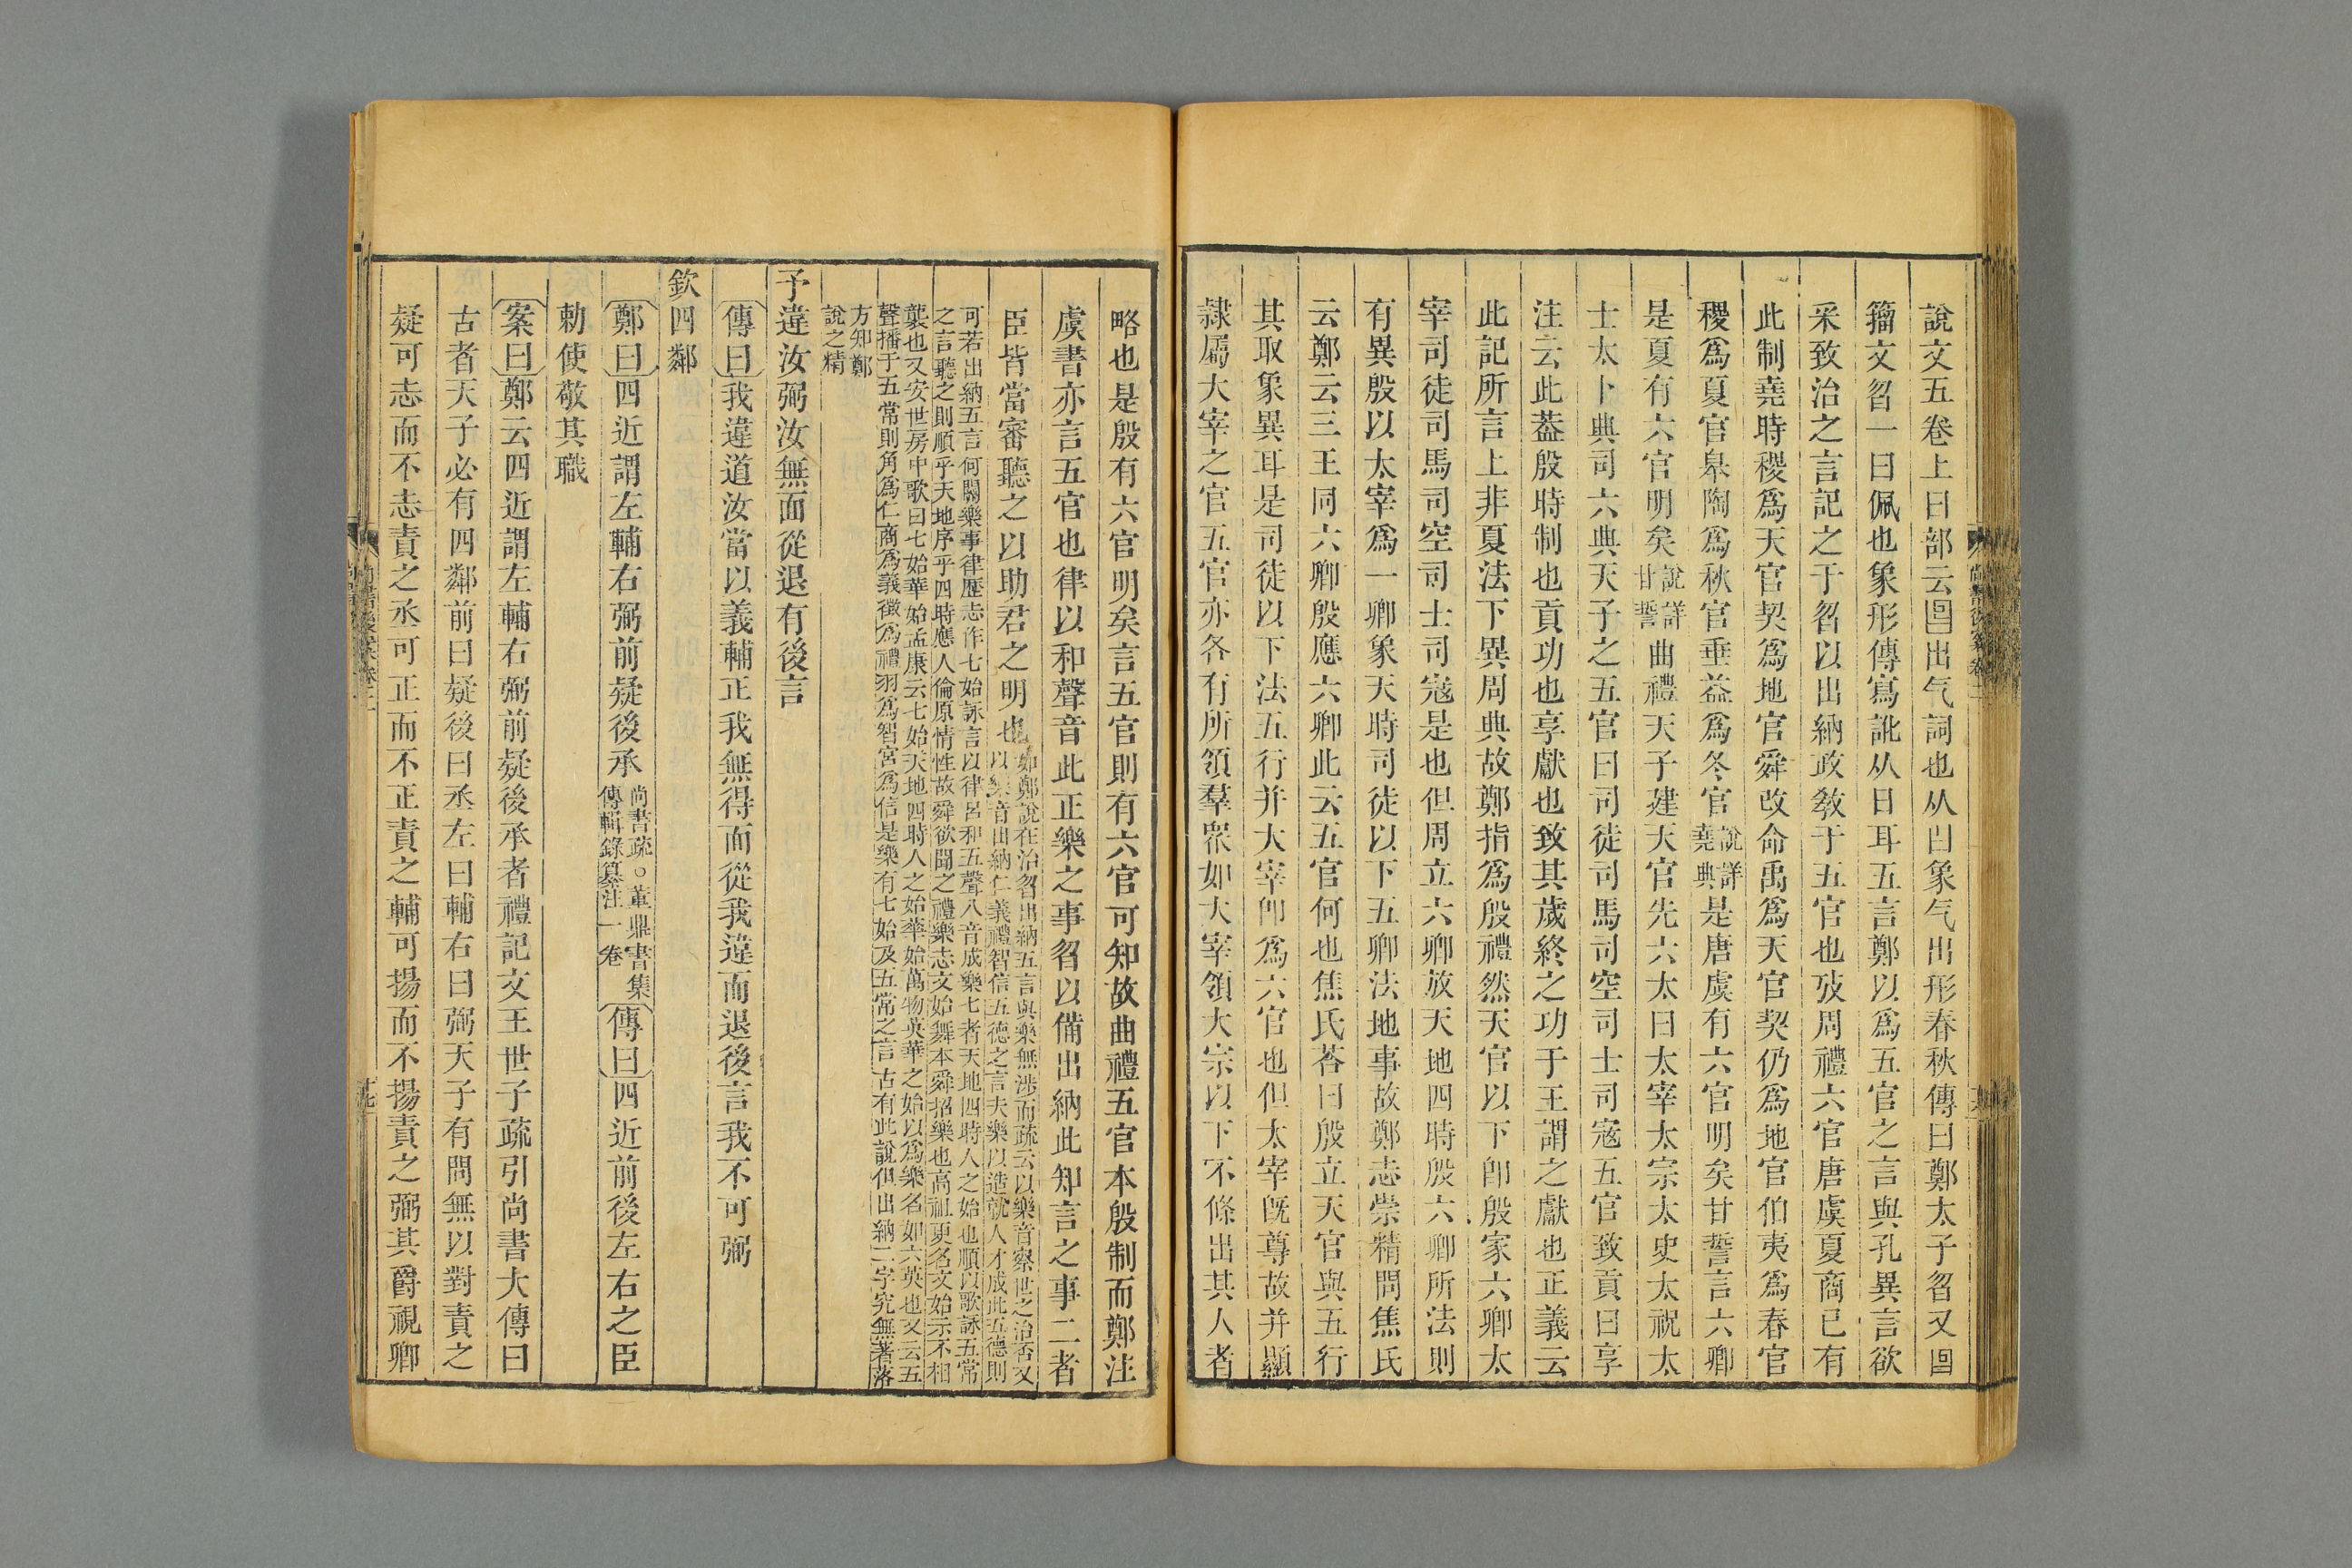 說文五卷上曰部云𠚒出气詞也从曰象气出形春秋傳曰鄭太子曶又𠚒
籀文曶一曰佩也象形傳寫訛从日耳五言鄭以爲五官之言與孔異言欲
采致治之言記之于曶以出納政敎于五官也攷周禮六官唐虞夏商已有
此制堯時稷爲天官契爲地官舜改命禹爲天官契仍爲地官伯夷爲春官
稷爲夏官皋陶爲秋官垂益爲冬官說詳堯典是唐虞有六官明矣甘誓言六卿
是夏有六官明矣說詳甘誓曲禮天子建天官先六太曰太宰太宗太史太祝太
士太卜典司六典天子之五官曰司徒司馬司空司士司寇五官致貢曰享
注云此葢殷時制也貢功也享獻也致其歲終之功于王謂之獻也正義云
此記所言上非夏法下異周典故鄭指爲殷禮然天官以下卽殷家六卿太
宰司徒司馬司空司士司寇是也但周立六卿放天地四時殷六卿所法則
有異殷以太宰爲一卿象天時司徒以下五卿法地事故鄭志崇精問焦氏
云鄭云三王同六卿殷應六卿此云五官何也焦氏荅曰殷立天官與五行
其取象異耳是司徒以下法五行并大宰卽爲六官也但太宰旣尊故并顯
隸屬大宰之官五官亦各有所領羣衆如大宰領大宗以下不條出其人者
略也是殷有六官明矣言五官則有六官可知故曲禮五官本殷制而鄭注
虞書亦言五官也律以和聲音此正樂之事曶以備出納此知言之事二者
臣皆當審聽之以助君之明也如鄭說在治曶出納五言與樂無涉而疏云以樂音察世之治否又
以樂音出納仁義禮智信五德之言夫樂以造就人才成此五德則
可若出納五言何關樂事律歷志作七始詠言以律呂和五聲八音成樂七者天地四時人之始也順以歌詠五常
之言聽之則順乎天地序乎四時應人倫原情性故舜欲聞之禮樂志文始舞本舜招樂也高祖更名文始示不相
襲也又安世房中歌曰七始華始孟康云七始天地四時人之始華始萬物英華之始以爲樂名如六英也又云五
聲播于五常則角爲仁商爲義徵爲禮羽爲智宮爲信是樂有七始及五常之言古有此說但出納二字究無著落
方知鄭
說之精
予違汝弼汝無面從退有後言
傳曰我違道汝當以義輔正我無得面從我違而退後言我不可弼
欽四鄰
鄭曰四近謂左輔右弼前疑後承尚書疏○董鼎書集傳輯錄纂注一卷傳曰四近前後左右之臣
勅使敬其職
案曰鄭云四近謂左輔右弼前疑後承者禮記文王世子疏引尚書大傳曰
古者天子必有四鄰前曰疑後曰丞左曰輔右曰弼天子有問無以對責之
疑可志而不志責之丞可正而不正責之輔可揚而不揚責之弼其爵視卿